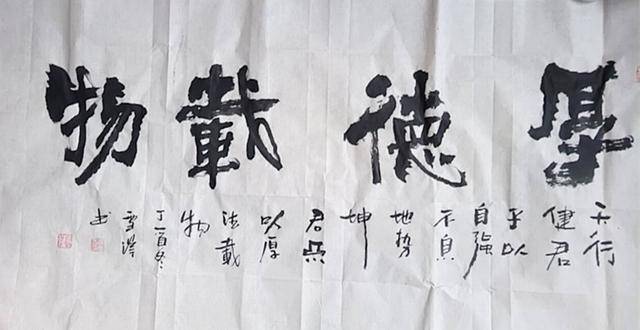 厚德載物
天行
健君
子以
自强
不息
地势
坤
君
以厚
載
物
丁酉冬
雪
书